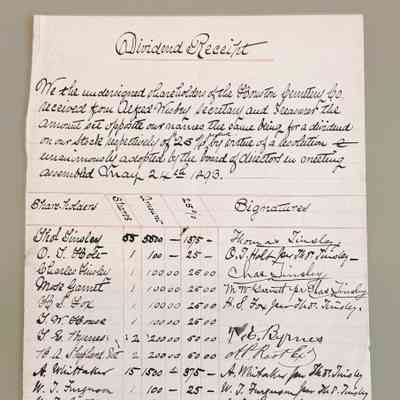 Dividend Receipt
We the undersigned shareholders of the Houston Cemetery Co.
received from Alfred Wisby Secretary and Treasurer the
amount set opposite our names the same being for a dividend
on our Stock respectively of 25% by virtue of a resolution
unanimously adopted by the board of directors in meeting
assembled May 24th 1893.
Shareholders Shares Amount 25% Signatures
Thos Tinsley 55 5500 — 1375 — Thomas Tinsley
O. T. Holt 1 100 — 25 — O. T. Holt per Thos. Tinsley
Charles Tinsley 1 100 00 25 00 Chas Tinsley
Mose Garrett 1 100 00 25 00 per Chas Tinsley
H. S. Fox 1 100 00 25 00 H. S. Fox per Thos. Tinsley
T. W. House 1 100 00 25 00
2 200 00 50 00 Byrnes
2 200 00 50 00
A. Whittaker 15 1500 — 375 — A. Whittaker per Thos. Tinsley
W. J. Ferguson 1 100 — 25 — W. J. Ferguson per Thos. Tinsley